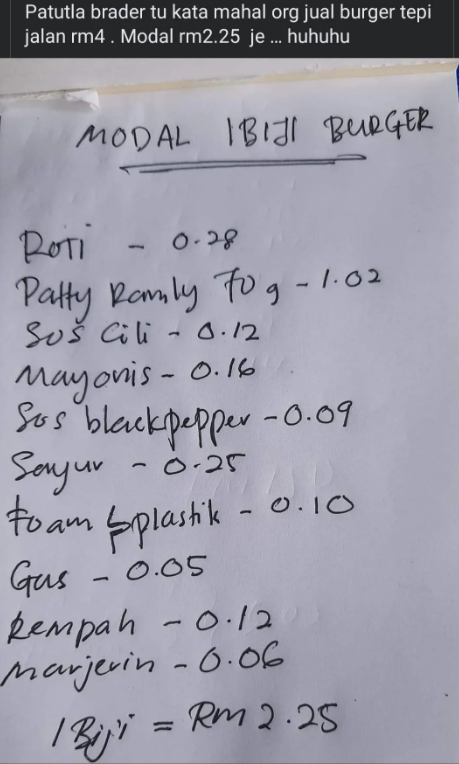 Patutla brader tu kata mahal org jual burger tepi
jalan rm4 . Modal rm2.25 je ... huhuhu
MODAL 1BIJI BURGER
Roti - 0.28
Patty Ramly 70g - 1.02
Sos Cili - 0.12
Mayonis - 0.16
Sos blackpepper - 0.09
Sayur - 0.25
foam & plastik - 0.10
Gas - 0.05
Rempah - 0.12
Marjerin - 0.06
1 Biji = Rm 2.25